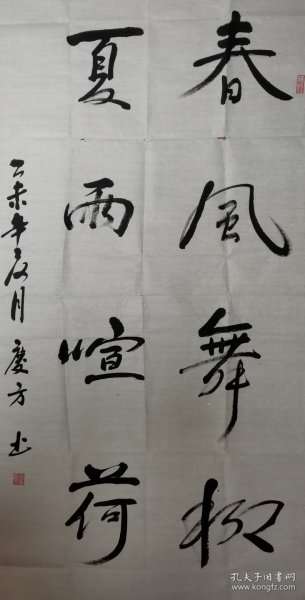 春風舞柳
夏雨喧荷
乙未年夏月慶方书
孔夫子旧书网
www.kongfz.com